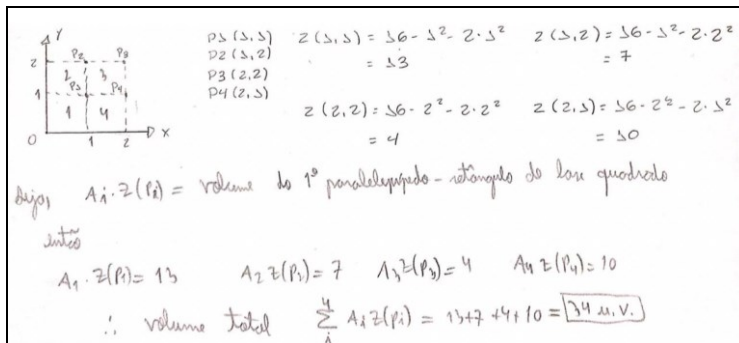 Y
P2 P3
2
2 3
P1 P4
1
1 4
0 1 2 X
P1 (1,1) z(1,1) = 16 - 1² - 2·1² z(1,2) = 16 - 1² - 2·2²
P2 (1,2) = 13 = 7
P3 (2,2)
P4 (2,1)
z(2,2) = 16 - 2² - 2·2² z(2,1) = 16 - 2² - 2·1²
= 4 = 10
Seja, A₁·z(P₁) = volume do 1º paralelepípedo-retângulo de base quadrada
então
A₁·z(P₁) = 13 A₂ z(P₂) = 7 A₃ z(P₃) = 4 A₄ z(P₄) = 10
∴ volume total 4 Σ i Aᵢ z(pᵢ) = 13+7+4+10 = 34 u.v.